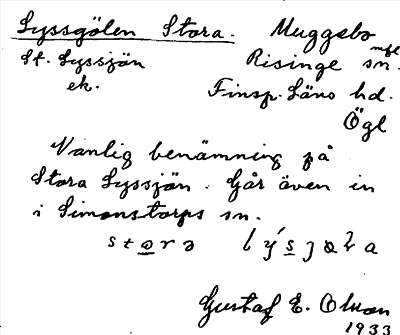 Lyssgölen Stora. Muggebo mfl
St. Lyssjön Risinge sn.
ek. Finsp. Läns hd.
Ögl
Vanlig benämning på
Stora Lyssjön. Går även in
i Simonstorps sn.
Gustaf E. Olsson
1933